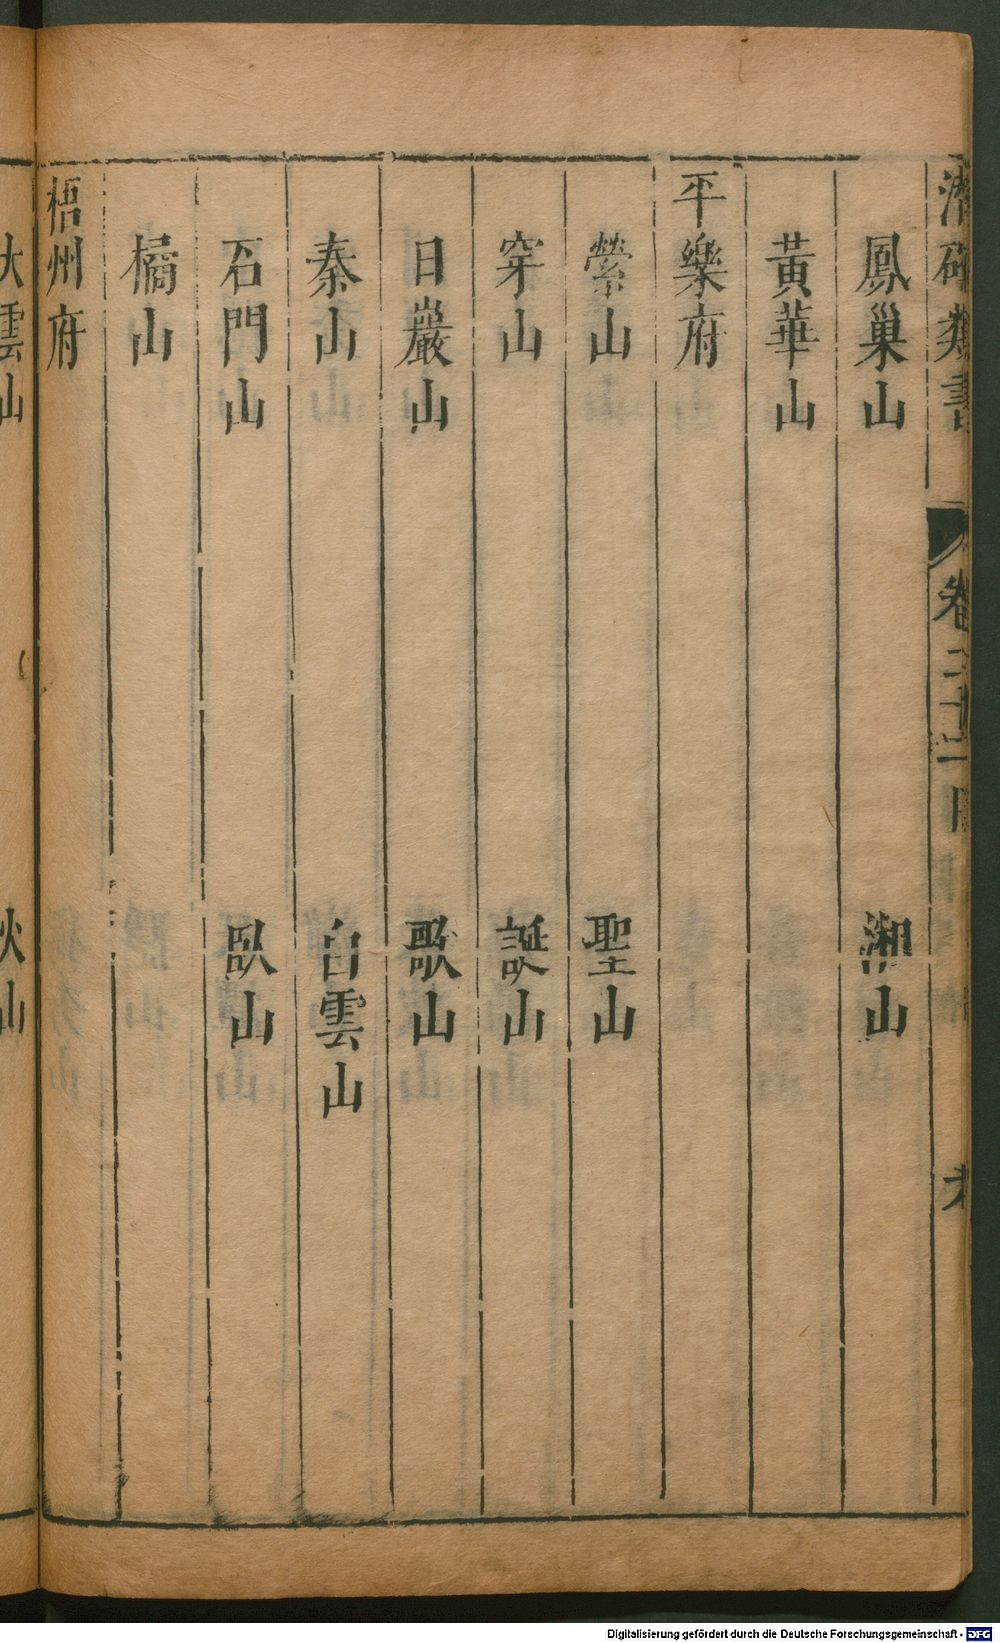 潛確類書 卷二十二 目
鳳巢山 湘山
黃華山
平樂府
縈山 聖山
穿山 誕山
日巖山 歌山
秦山 白雲山
石門山 臥山
橘山
梧州府
大雲山 火山
Digitalisierung gefördert durch die Deutsche Forschungsgemeinschaft - DFG